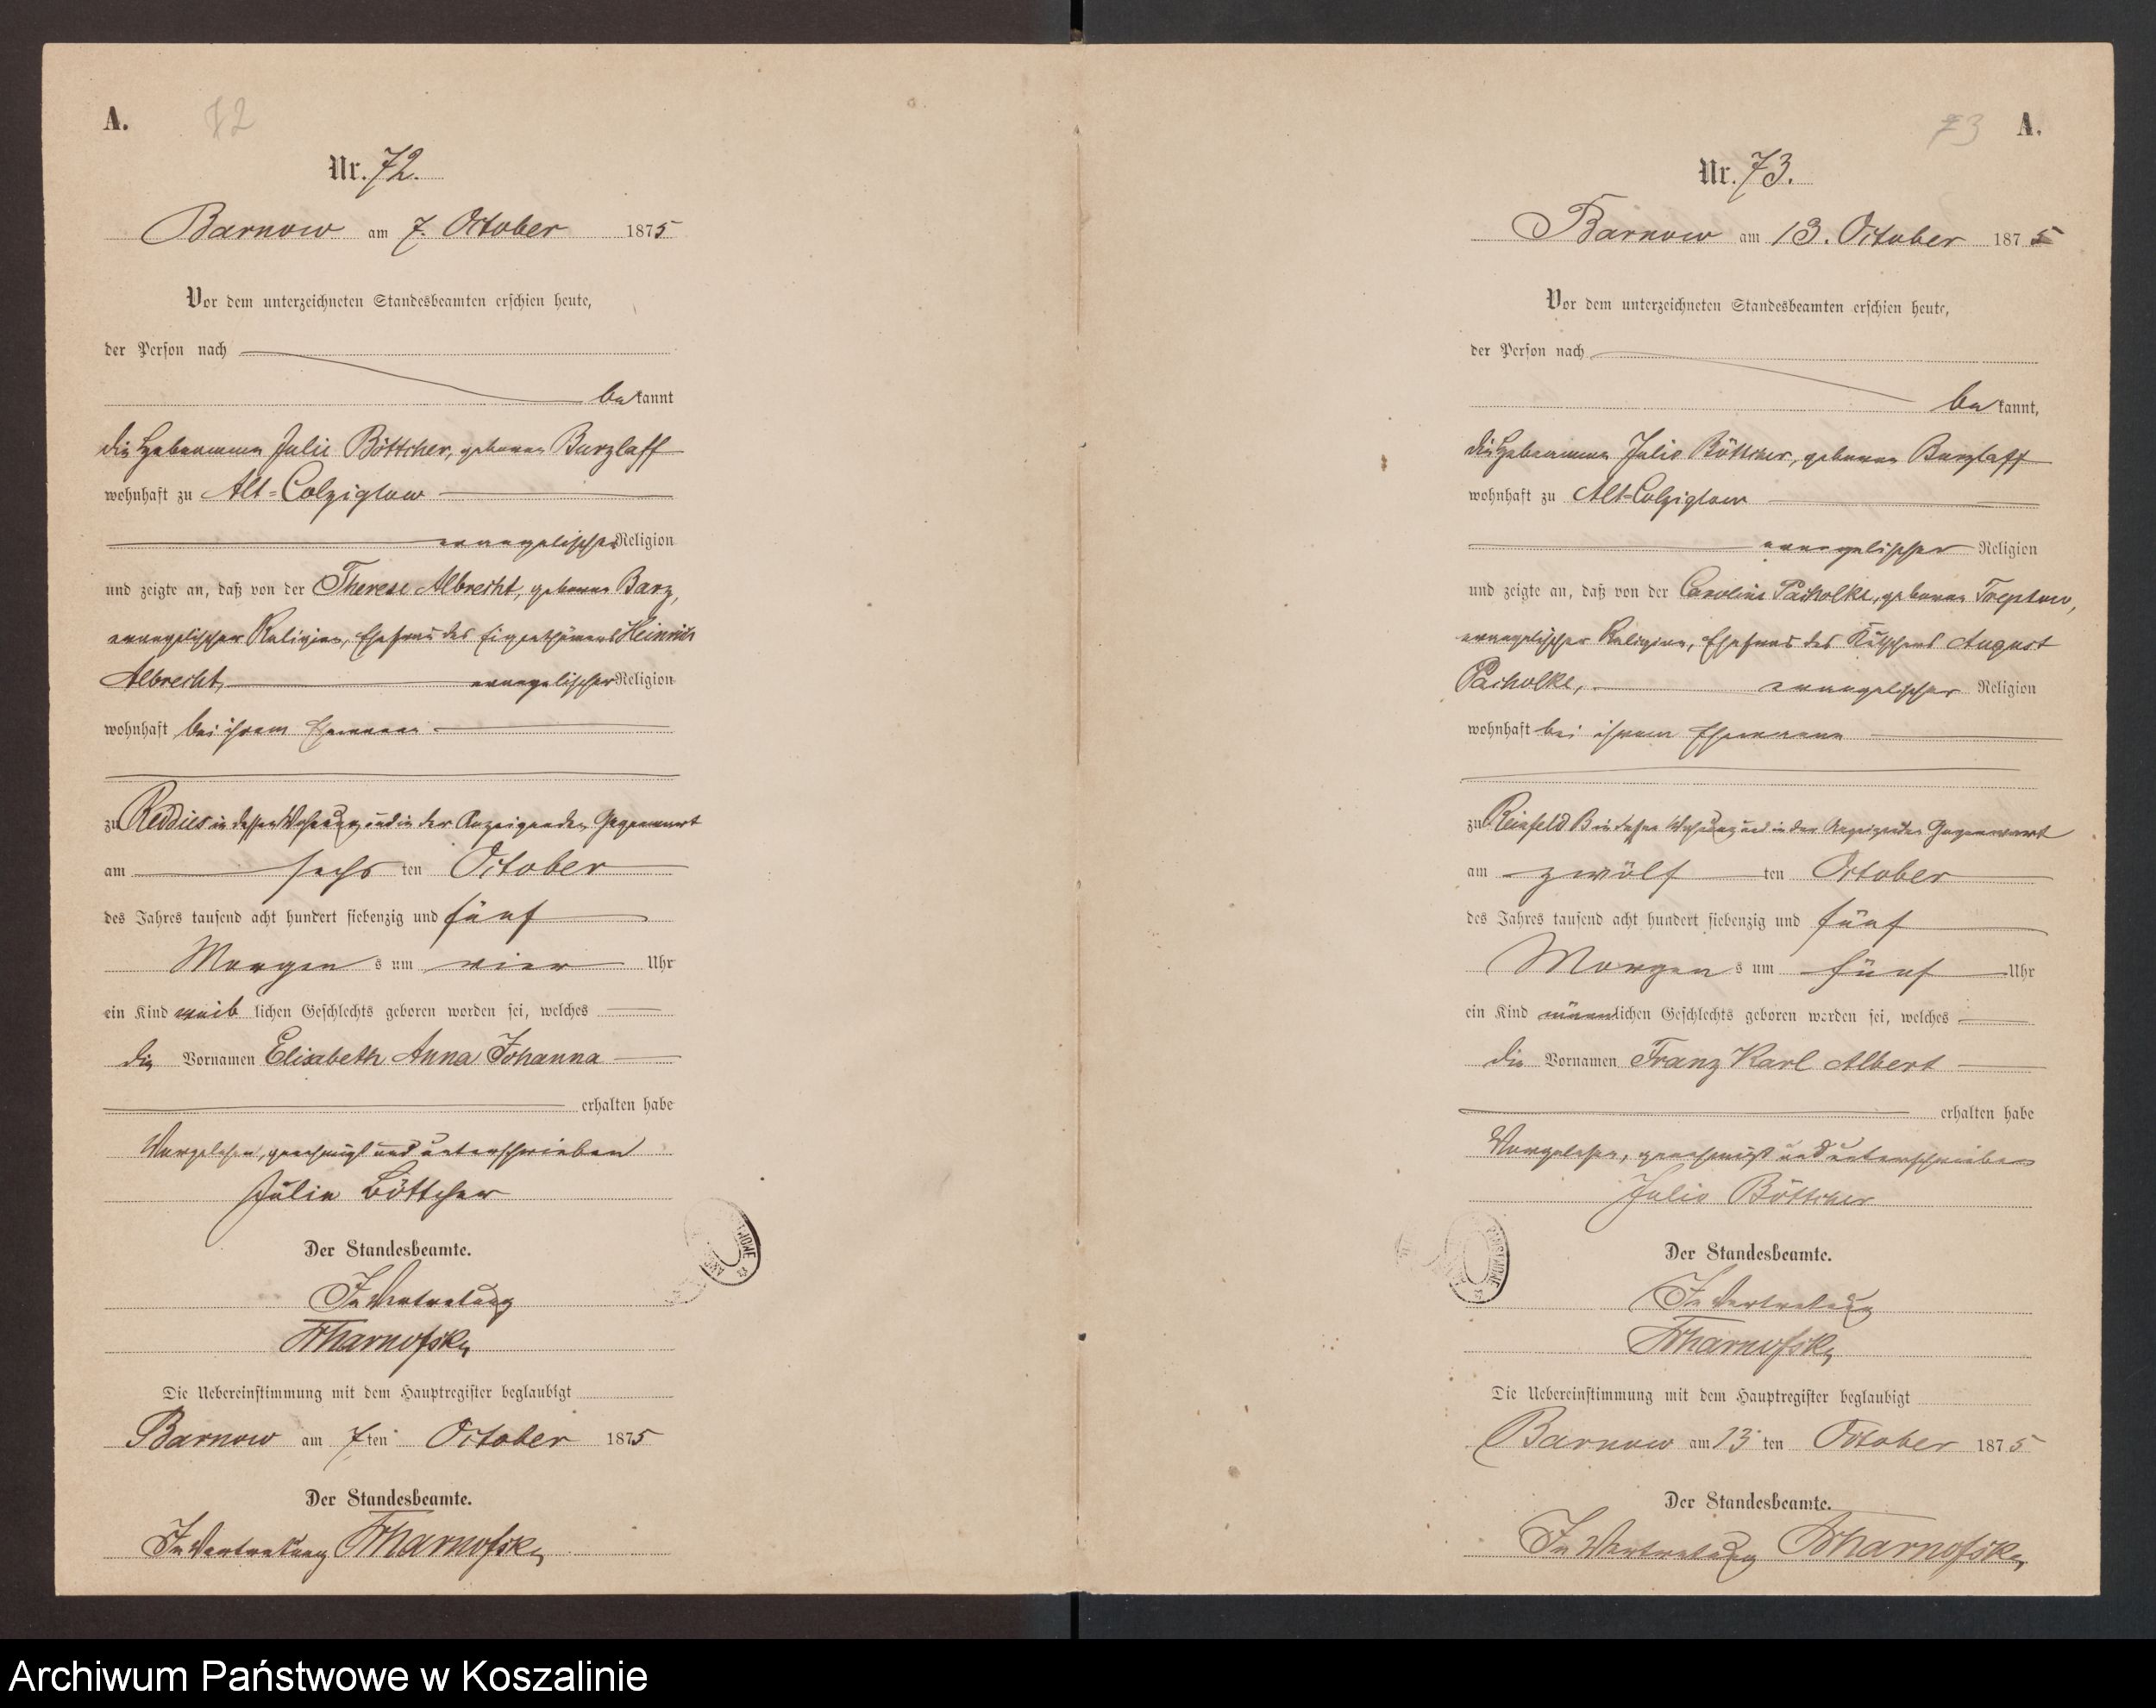 A.
72
Nr. 72.
Barnow am 7. October 1875
Vor dem unterzeichneten Standesbeamten erschien heute,
der Person nach
bekannt
die Hebamme Julie Böttcher, geborene Burzlaff
wohnhaft zu Alt-Colziglow
evangelischer Religion
und zeigte an, daß von der Therese Albrecht, geborene Barz,
evangelischer Religion, Ehefrau des Eigenthümers Heinrich
Albrecht, evangelischer Religion
wohnhaft bei ihrem Ehemann
zu Reddies in dessen Wohnung und in der Anzeigenden Gegenwart
am sechsten October
des Jahres tausend acht hundert siebenzig und fünf
Morgens um vier Uhr
ein Kind weiblichen Geschlechts geboren worden sei, welches
die Vornamen Elisabeth Anna Johanna
erhalten habe
Vorgelesen, genehmigt und unterschrieben
Julie Böttcher
Der Standesbeamte.
In Vertretung
Die Uebereinstimmung mit dem Hauptregister beglaubigt
Barnow am 7ten October 1875
Der Standesbeamte.
In Vertretung
73
A.
Nr. 73.
Barnow am 13. October 1875
Vor dem unterzeichneten Standesbeamten erschien heute,
der Person nach
bekannt,
die Hebamme Julie Böttcher, geborene Burzlaff
wohnhaft zu Alt-Colziglow
evangelischer Religion
und zeigte an, daß von der Caroline Pacholke, geborene Treptow,
evangelischer Religion, Ehefrau des August
Pacholke, evangelischer Religion
wohnhaft bei ihrem Ehemann
zu Reinfeld B in dessen Wohnung und in der Anzeigenden Gegenwart
am zwölften October
des Jahres tausend acht hundert siebenzig und fünf
Morgens um fünf Uhr
ein Kind männlichen Geschlechts geboren worden sei, welches
die Vornamen Franz Karl Albert
erhalten habe
Vorgelesen, genehmigt und unterschrieben
Julie Böttcher
Der Standesbeamte.
In Vertretung
Die Uebereinstimmung mit dem Hauptregister beglaubigt
Barnow am 13ten October 1875
Der Standesbeamte.
In Vertretung
Archiwum Państwowe w Koszalinie